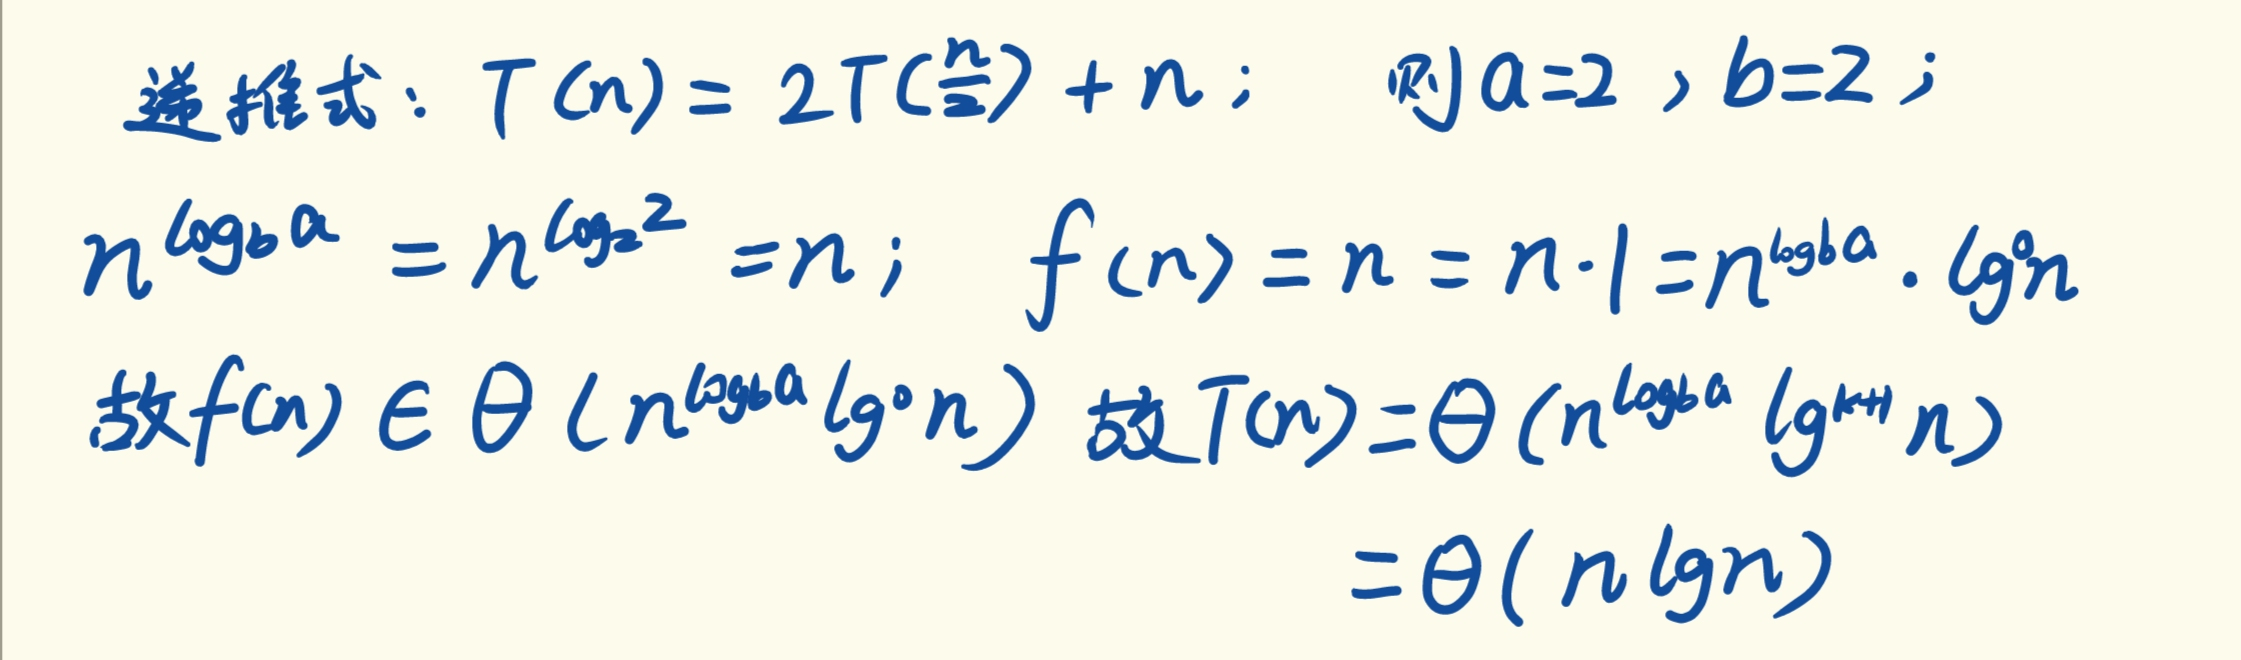 递推式：T(n) = 2T(n/2) + n； 则a=2，b=2；
n^{log_b a} = n^{log_2 2} = n； f(n) = n = n·1 = n^{log_b a} · lg^0 n
故f(n) ∈ θ(n^{log_b a} lg^0 n) 故T(n) = θ(n^{log_b a} lg^{k+1} n)
= θ(n lg n)